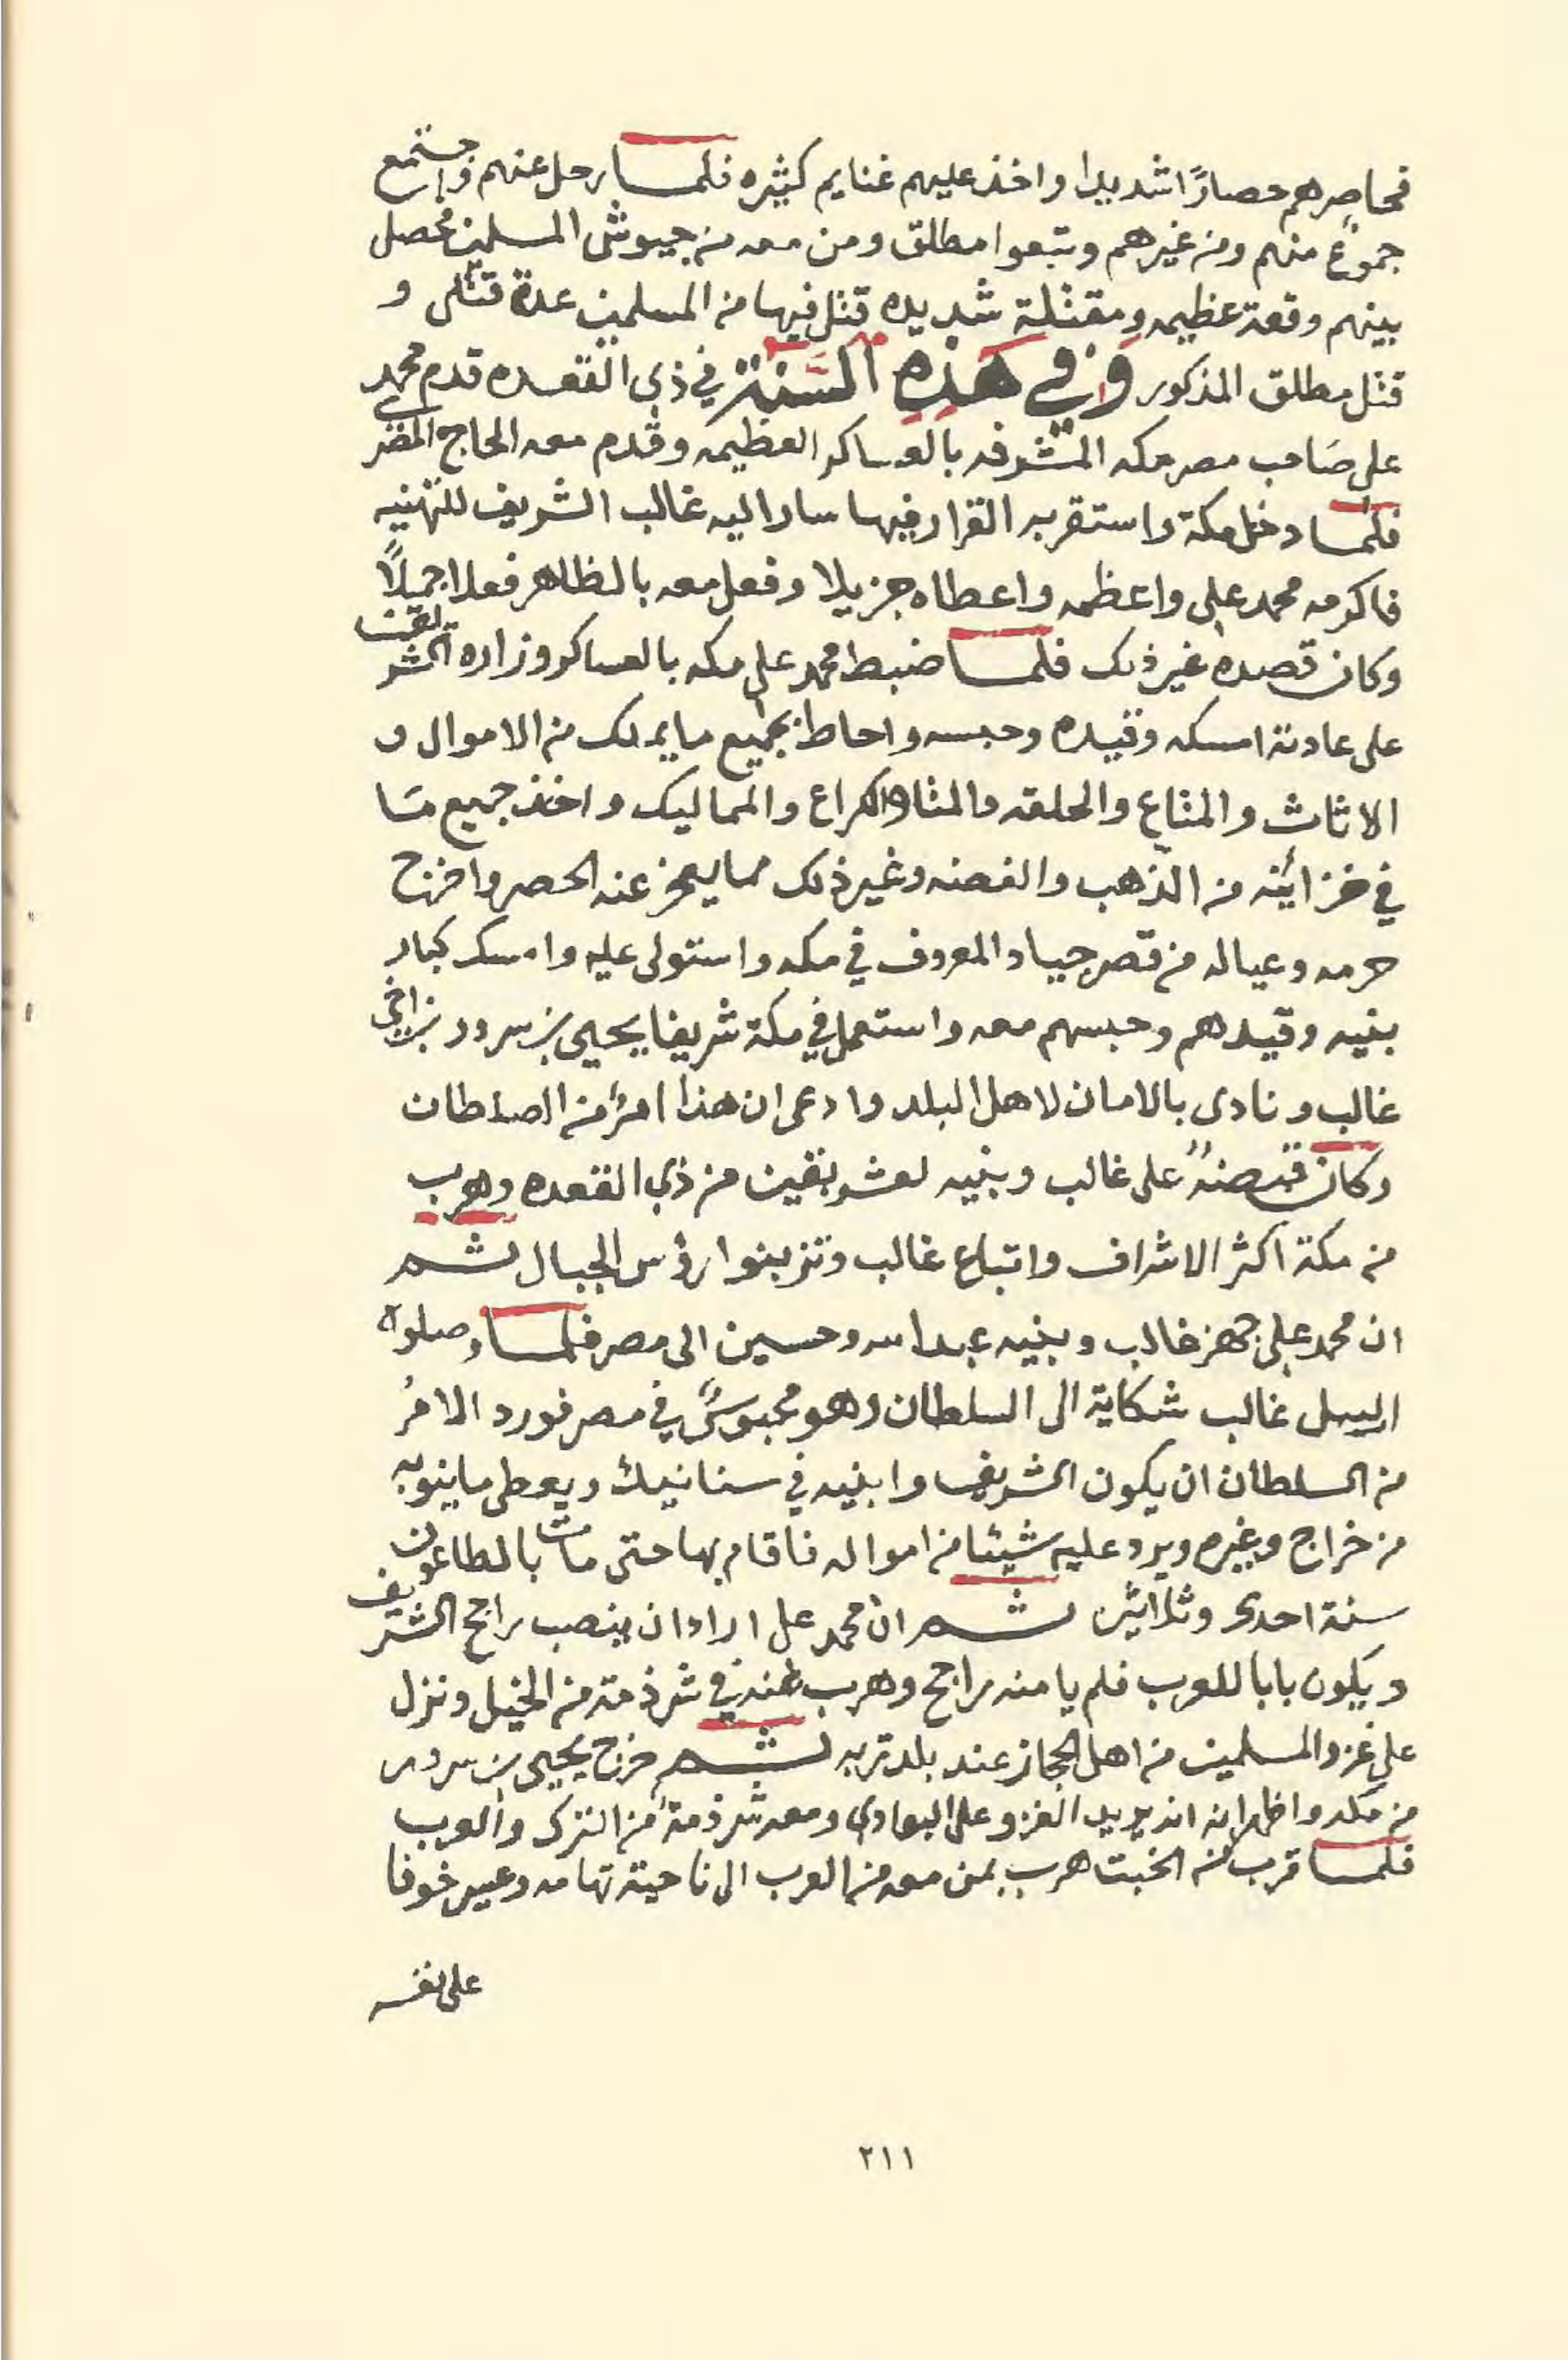 فحاصرهم حصارًا شديدا واخذ عليهم غنايم كثيره فلما رحل عنهم واجتمع
جموعٌ منهم ومن غيرهم وتبعوا مطلق ومن معه من جيوش المسلمين فحصل
بينهم وقعة عظيمه ومقتلة شديده قتل فيها من المسلمين عدة قتلى و
قتل مطلق المذكور وَفي هَذِهِ السَّنَة في ذي القعده قدم محمد
على صَاحب مصر مكه المشرفه بالعساكر العظيمه وقدم معه الحاج المصري
فلما دخل مكة واستقر به القرار فيها سار اليه غالب الشريف للتهنيه
فاكرمه محمد على واعظمه واعطاه جزيلا وفعل معه بالظاهر فعلا جميلاً
وكان قصده غير ذلك فلما ضبط محمد على مكه بالعساكر وزاره الشريف
على عادته امسكه وقيده وحبسه واحاط بجميع ما يملك من الاموال و
الاثاث والمتاع والحلقه والكراع والمماليك واخذ جميع مَا
في خزائنه من الذهب والفضه وغير ذلك مما يعجز عنه الحصر واخرج
حرمه وعياله من قصر جياد المعروف في مكه واستولى عليه وامسك كبار
بنيه وقيدهم وحبسهم معه واستعمل في مكة شريفا يحيى بن سرور بن اخي
غالب ونادى بالامان لاهل البلد وادعى ان هذا امرٌ من السلطان
وكان قبضهُ على غالب وبنيه لعشر بقين من ذي القعده وهرب
من مكة اكثر الاشراف واتباع غالب وتزبنوا رؤس الجبال ثم
ان محمد على جهز غالب وبنيه عبدالله وحسين الى مصر فلما وصلوه
ارسل غالب شكاية الى السلطان وهو محبوسٌ في مصر فورد الامرُ
من السلطان ان يكون الشريف وابنيه في سنانيك ويعطى ما ينوبه
من خراج وغيره ويرد عليه شيئا من امواله فاقام بها حتى مات بالطاعون
سنة احدى وثلاثين ثم ان محمد على اراد ان ينصب راجح الشريف
ويكون بابا للعرب فلم يامنه راجح وهرب عنه في شرذمة من الخيل ونزل
على غزو المسلمين من اهل الحجاز عند بلد تربه ثم خرج يحيى بن سرور
من مكه واظهر انه يريد الغزو على البوادي ومعه شرذمة من الترك والعرب
فلما قرب من الخبت هرب بمن معه من العرب الى ناحية تهامه وعسير خوفا
على نفسه
٢١١